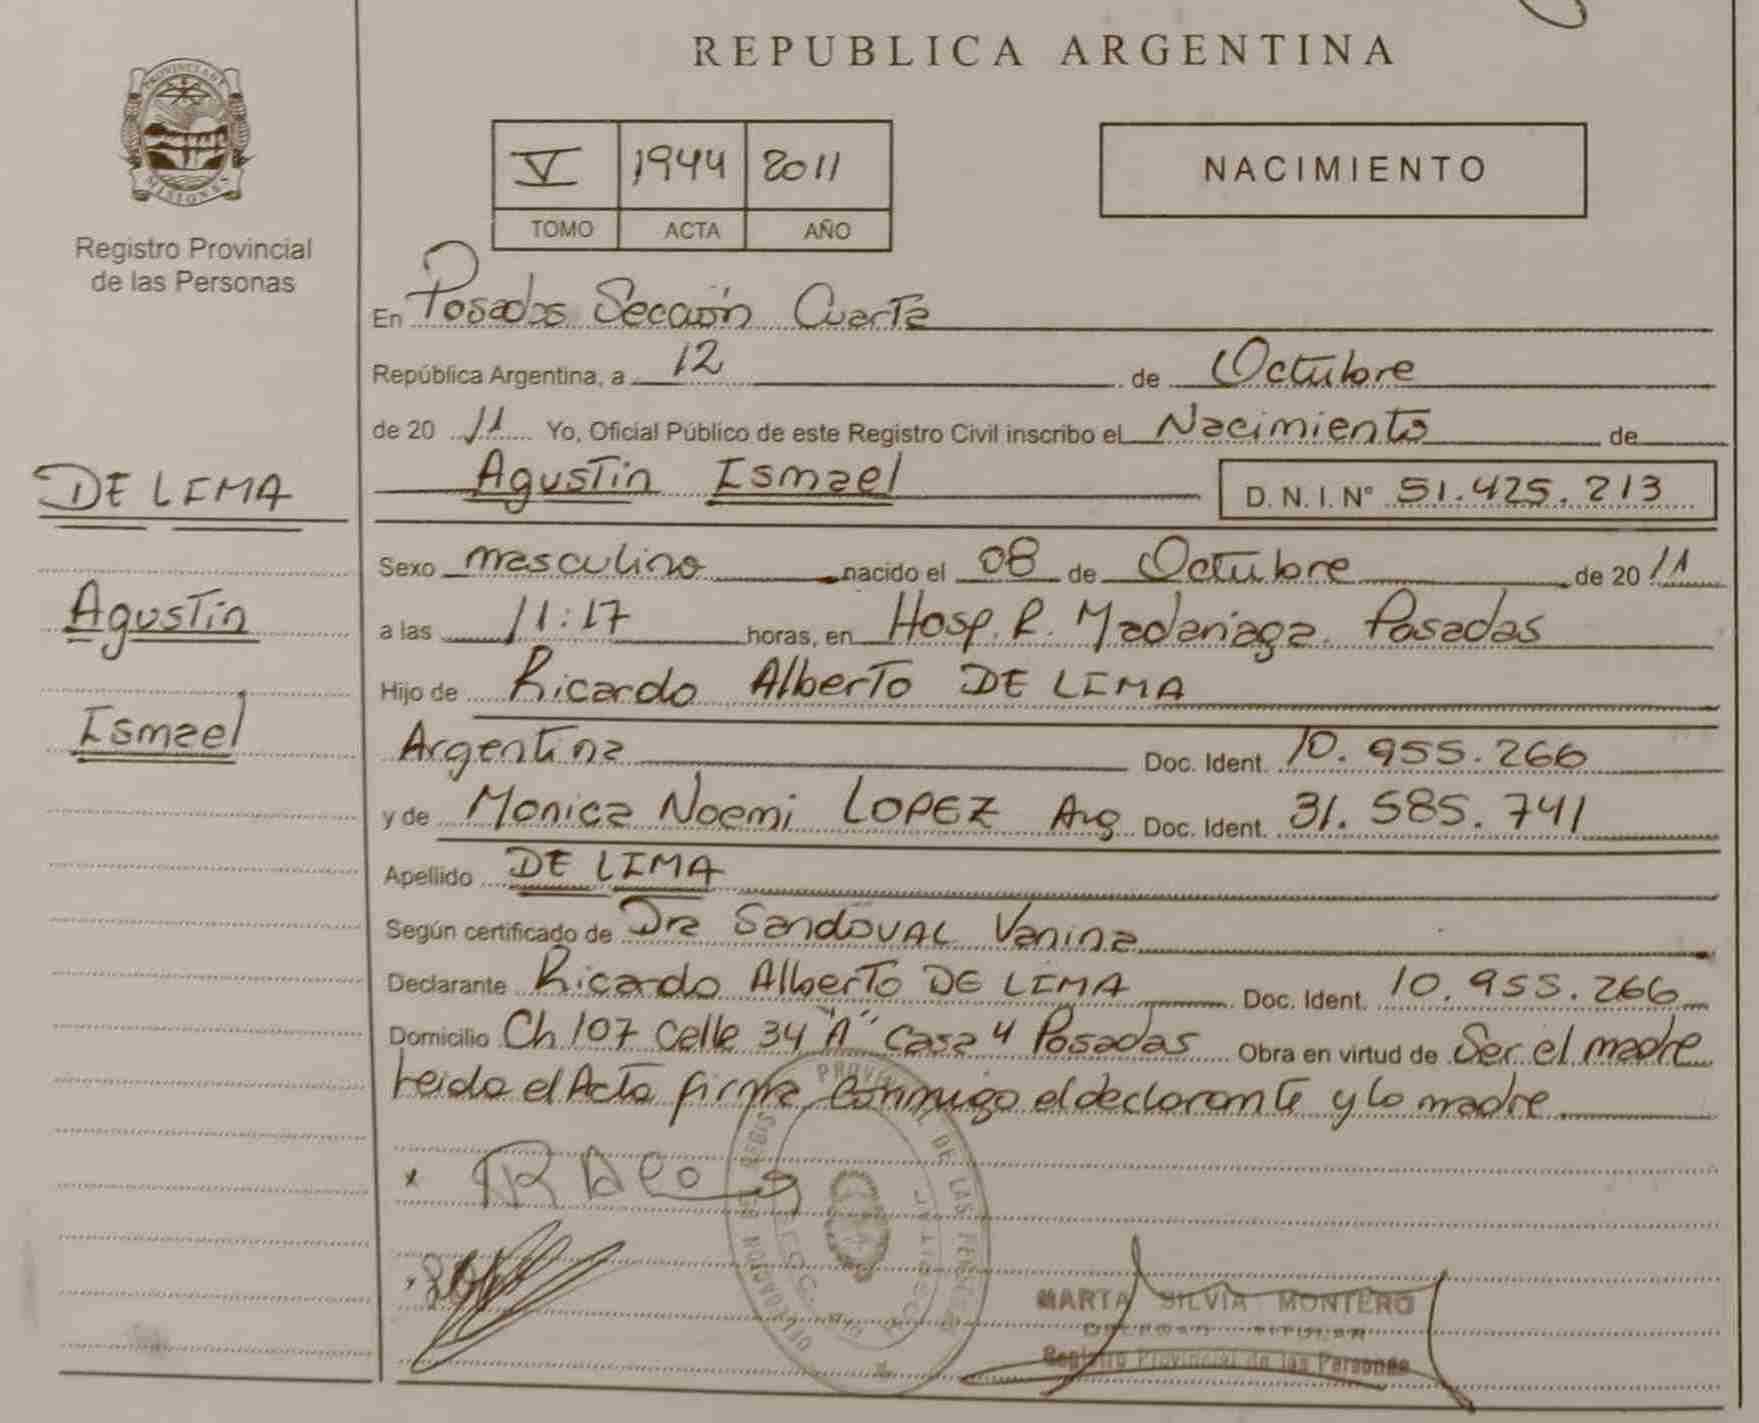 REPUBLICA ARGENTINA
PROVINCIA DE
MISIONES
Registro Provincial
de las Personas
V 1944 2011
TOMO ACTA AÑO
NACIMIENTO
En Posadas Sección Cuarta
República Argentina, a 12 de Octubre
de 20 11 Yo, Oficial Público de este Registro Civil inscribo el Nacimiento de
Agustin Ismael D. N. I. Nº 51.425.213
DE LIMA
Agustin
Ismael
Sexo masculino nacido el 08 de Octubre de 20 11
a las 11:17 horas, en Hosp. R. Madariaga. Posadas
Hijo de Ricardo Alberto DE LIMA
Argentina Doc. Ident. 10.955.266
y de Monica Noemi LOPEZ Arg Doc. Ident. 31.585.741
Apellido DE LIMA
Según certificado de Dra Sandoval Vanina
Declarante Ricardo Alberto DE LIMA Doc. Ident. 10.955.266
Domicilio Ch 107 Calle 34 "A" Casa 4 Posadas Obra en virtud de Ser el madre
Leida el Acta firma conmigo el declarante y la madre
PROVINCIAL DE LAS PERSONAS
DELEGACION
MARTA SILVIA MONTERO
TITULAR
Registro Provincial de las Personas